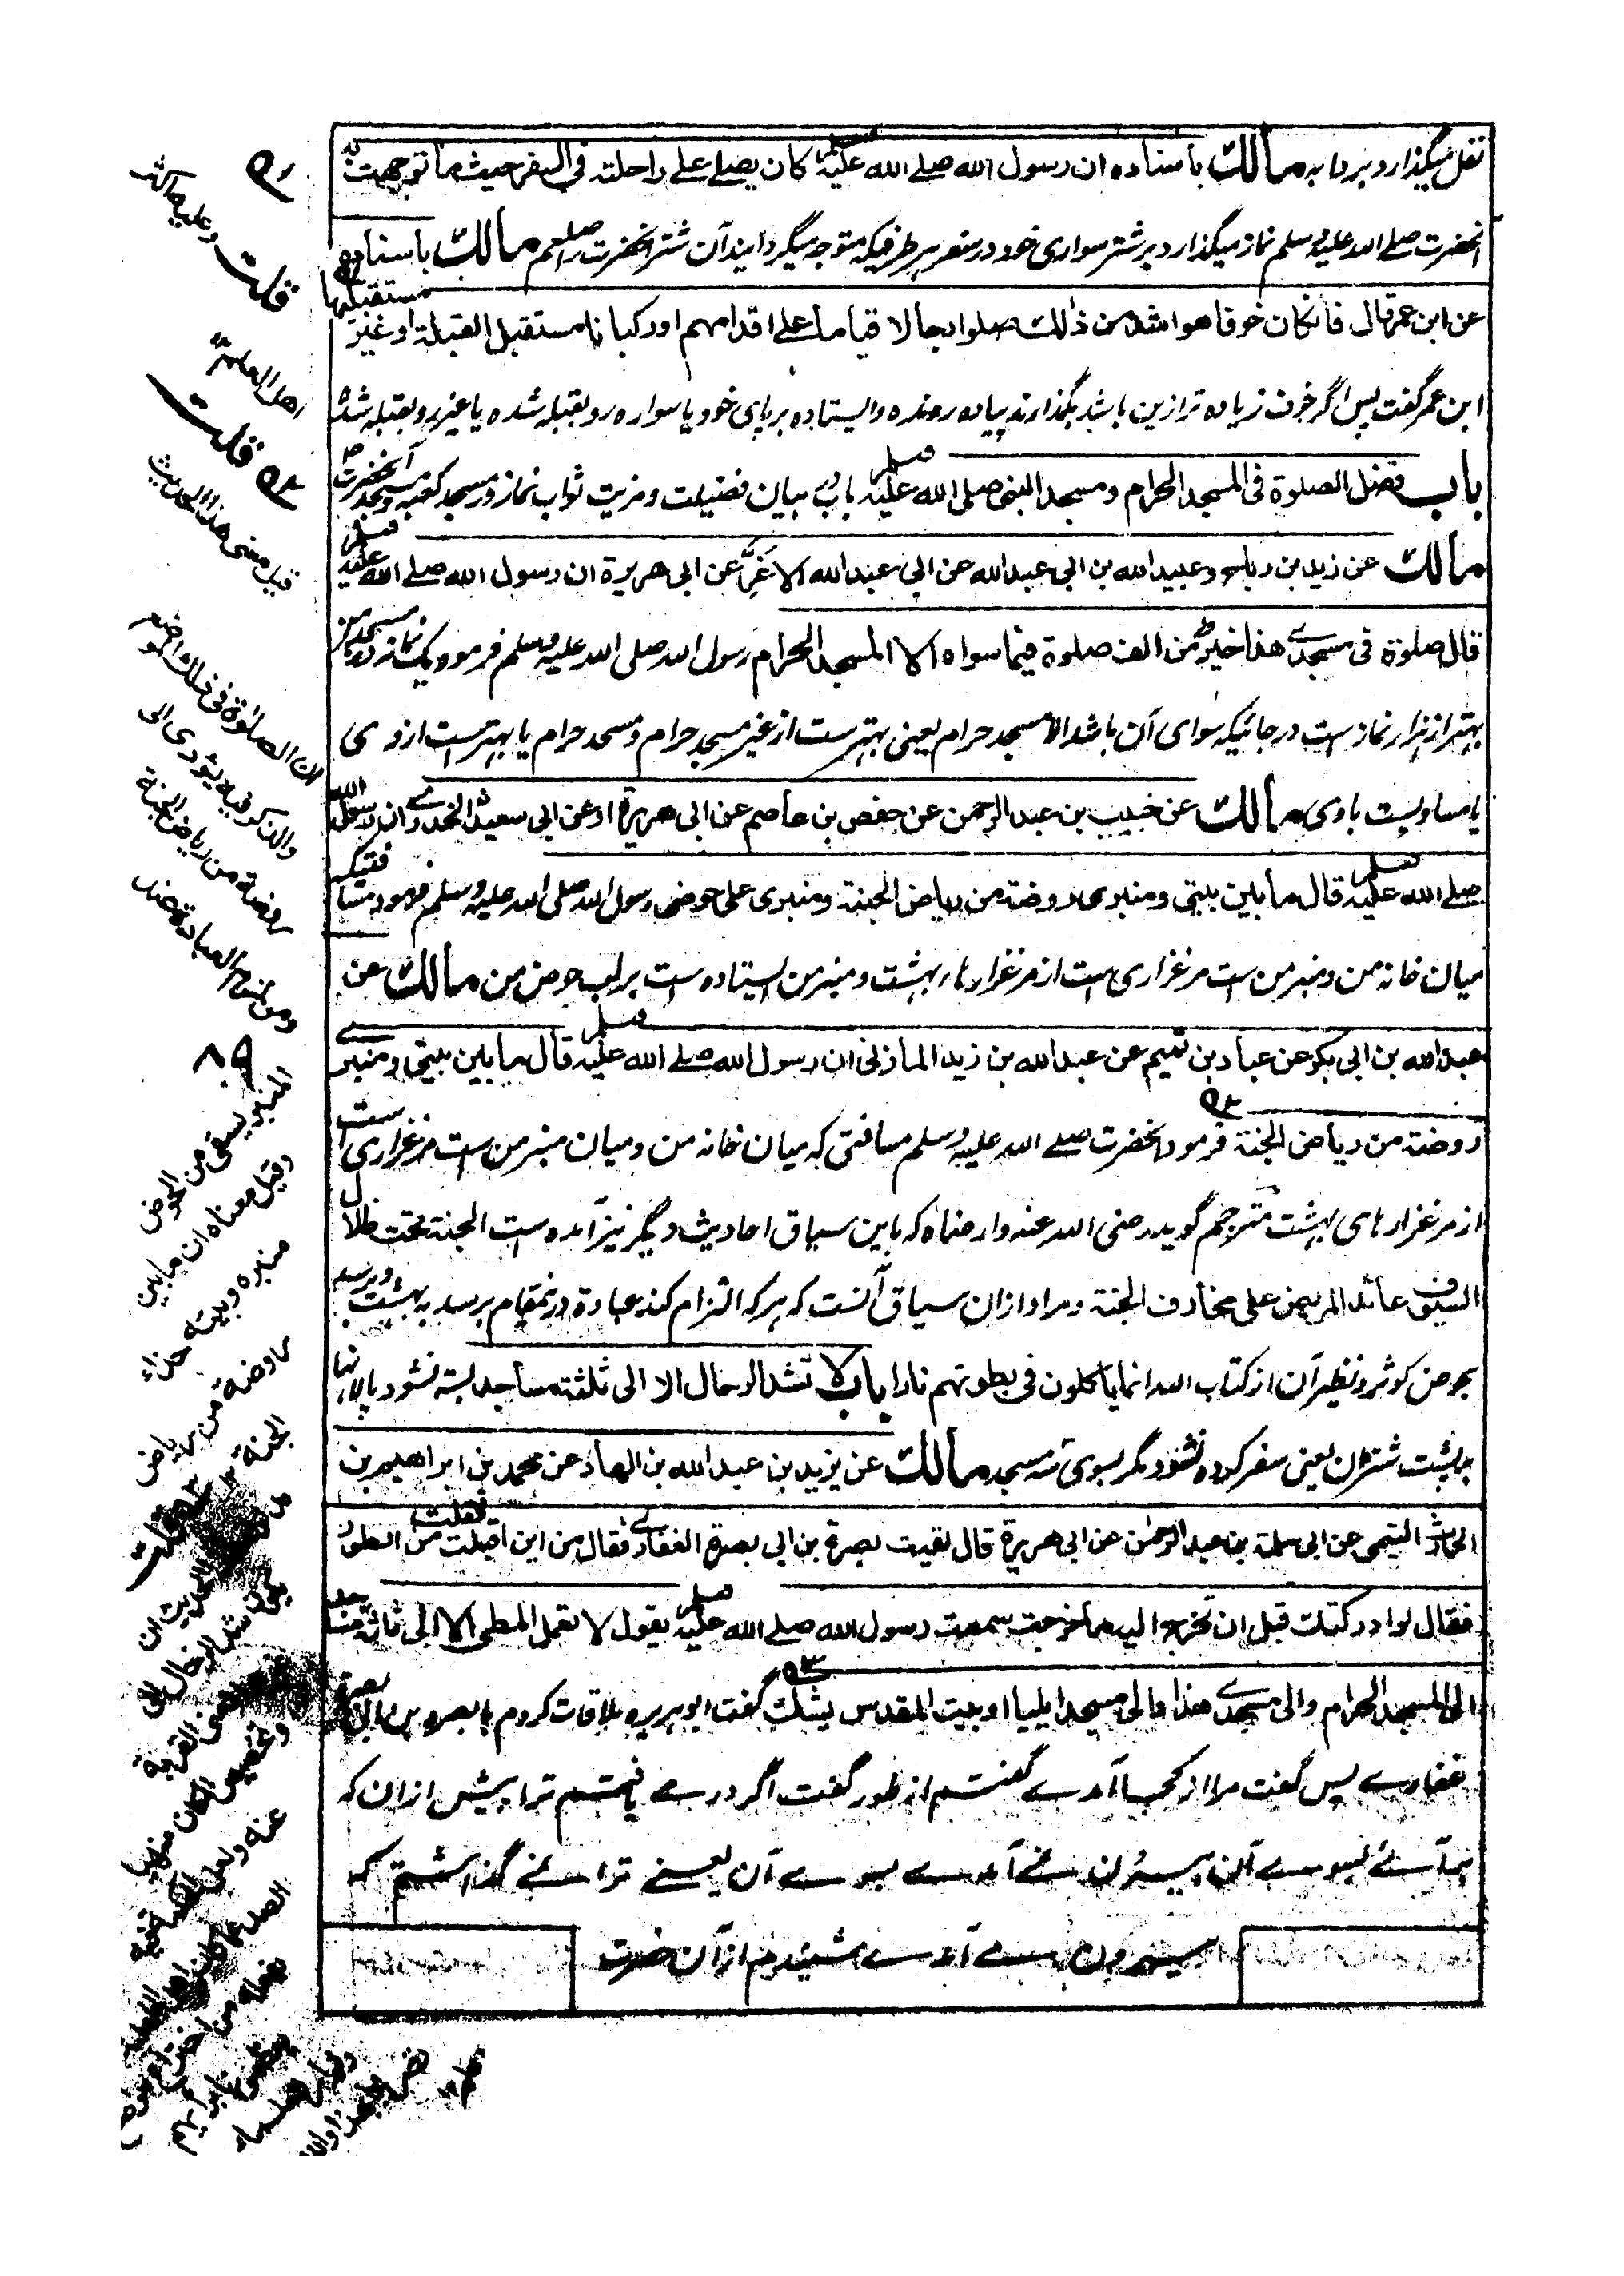 نفل میگذارد و بر دابه مالك باسناده ان رسول الله صلے الله علیه وسلم كان یصلے علے راحلته فی السفر حیث ما توجهت به
آنحضرت صلے الله علیه وسلم نماز میگذارد بر شتر سواری خود در سفر بهر طرفیکه متوجه میگردانید آن شتر آنحضرت را صلعم مالك باسناده
عن ابن عمر قال فان كان خوفا هوا شد من ذلك صلوا رجالا قیاما علے اقدامهم اور كبانا مستقبل القبلة او غیر مستقبلیها
ابن عمر گفت پس اگر خوف زیاده تر ازین باشد بگذارند پیاده رونده و ایستاده بر پای خود یا سواره رو بقبله شده یا غیر رو بقبله شده
باب فضل الصلوة فی المسجد الحرام ومسجد النبی صلے الله علیه وسلم باب در بیان فضیلت و مزیت ثواب نماز در مسجد کعبه و مسجد آنحضرت
مالك عن زید بن رباح وعبید الله بن ابی عبد الله عن ابی عبد الله الاغرّ عن ابی هریرة ان رسول الله صلے الله علیه وسلم
قال صلوة فی مسجدے هذا خیر من الف صلوة فیما سواه الا المسجد الحرام رسول الله صلی الله علیه وسلم فرمود یک نماز در مسجد من
بهتر از هزار نماز ست در جائیکه سوای آن باشد الا مسجد حرام یعنی بهتر ست از غیر مسجد حرام و مسجد حرام یا بهتر ست از وی
یا مساویست باوی مالك عن خبیب بن عبد الرحمن عن حفص بن عاصم عن ابی هریرة او عن ابی سعید الخدرے ان رسول الله
صلے الله علیه وسلم قال ما بین بیتی ومنبری روضة من ریاض الجنة ومنبری علی حوضی رسول الله صلی الله علیه وسلم فرمود مسافتیکه
میان خانه من و منبر من ست مرغزاری ست از مرغزارهای بهشت و منبر من ایستاده ست بر لب حوض من مالك عن
عبد الله بن ابی بكر عن عباد بن تمیم عن عبد الله بن زید المازنی ان رسول الله صلے الله علیه وسلم قال ما بین بیتی ومنبرے
روضة من ریاض الجنة فرمود آنحضرت صلے الله علیه وسلم مسافتی که میان خانه من و میان منبر من ست مرغزاری ست
از مرغزارهای بهشت مترجم گوید رضی الله عنه وارضاه که باین سیاق احادیث دیگر نیز آمده ست الجنة تحت ظلال
السیوف عائد المریض علی مخارف الجنة و مراد ازان سیاق آنست که هر که التزام کند عبادة درینمقام برسد به بهشت و برسد
بحوض کوثر و نظیر آن از کتاب الله انما یاکلون فی بطونهم نارا باب لا تشد الرحال الا الی ثلثة مساجد بسته نشود پالانها
بر پشت شتران یعنی سفر کرده نشود مگر بسوی سه مسجد مالك عن یزید بن عبد الله بن الهاد عن محمد بن ابراهیم بن
الحارث التیمی عن ابی سلمة بن عبد الرحمن عن ابی هریرة قال لقیت بصرة بن ابی بصرة الغفارے فقال من این اقبلت فقلت من الطور
فقال لو ادركتك قبل ان تخرج الیه ما خرجت سمعت رسول الله صلے الله علیه وسلم یقول لا تعمل المطی الا الی ثلثة مساجد
الی المسجد الحرام والی مسجدے هذا والی مسجد ایلیا او بیت المقدس یشك گفت ابو هریره ملاقات کردم با بصره بن ابی بصرة
غفارے پس گفت مرا از کجا آمدے گفتم از طور گفت اگر درمے یافتم ترا پیش ازان که
برآئے بسوے آن بیرون نمے آمدے بسوے آن یعنے ترا نمے گذاشتم که
بیرون آمدے شنیدم از آن حضرت
۵۱ قلت وعلیه اكثر
اهل العلم
۵۲ قلت
قیل معنی هذا الحدیث
ان الصلوة فی ذلك الموضع
والذكر فیه یؤدی الی
روضة من ریاض الجنة
ومن لزم العبادة عند
المنبر یسقی من الحوض
وقیل معناه ان ما بین
منبره وبیته حذاء
روضة من ریاض
الجنة